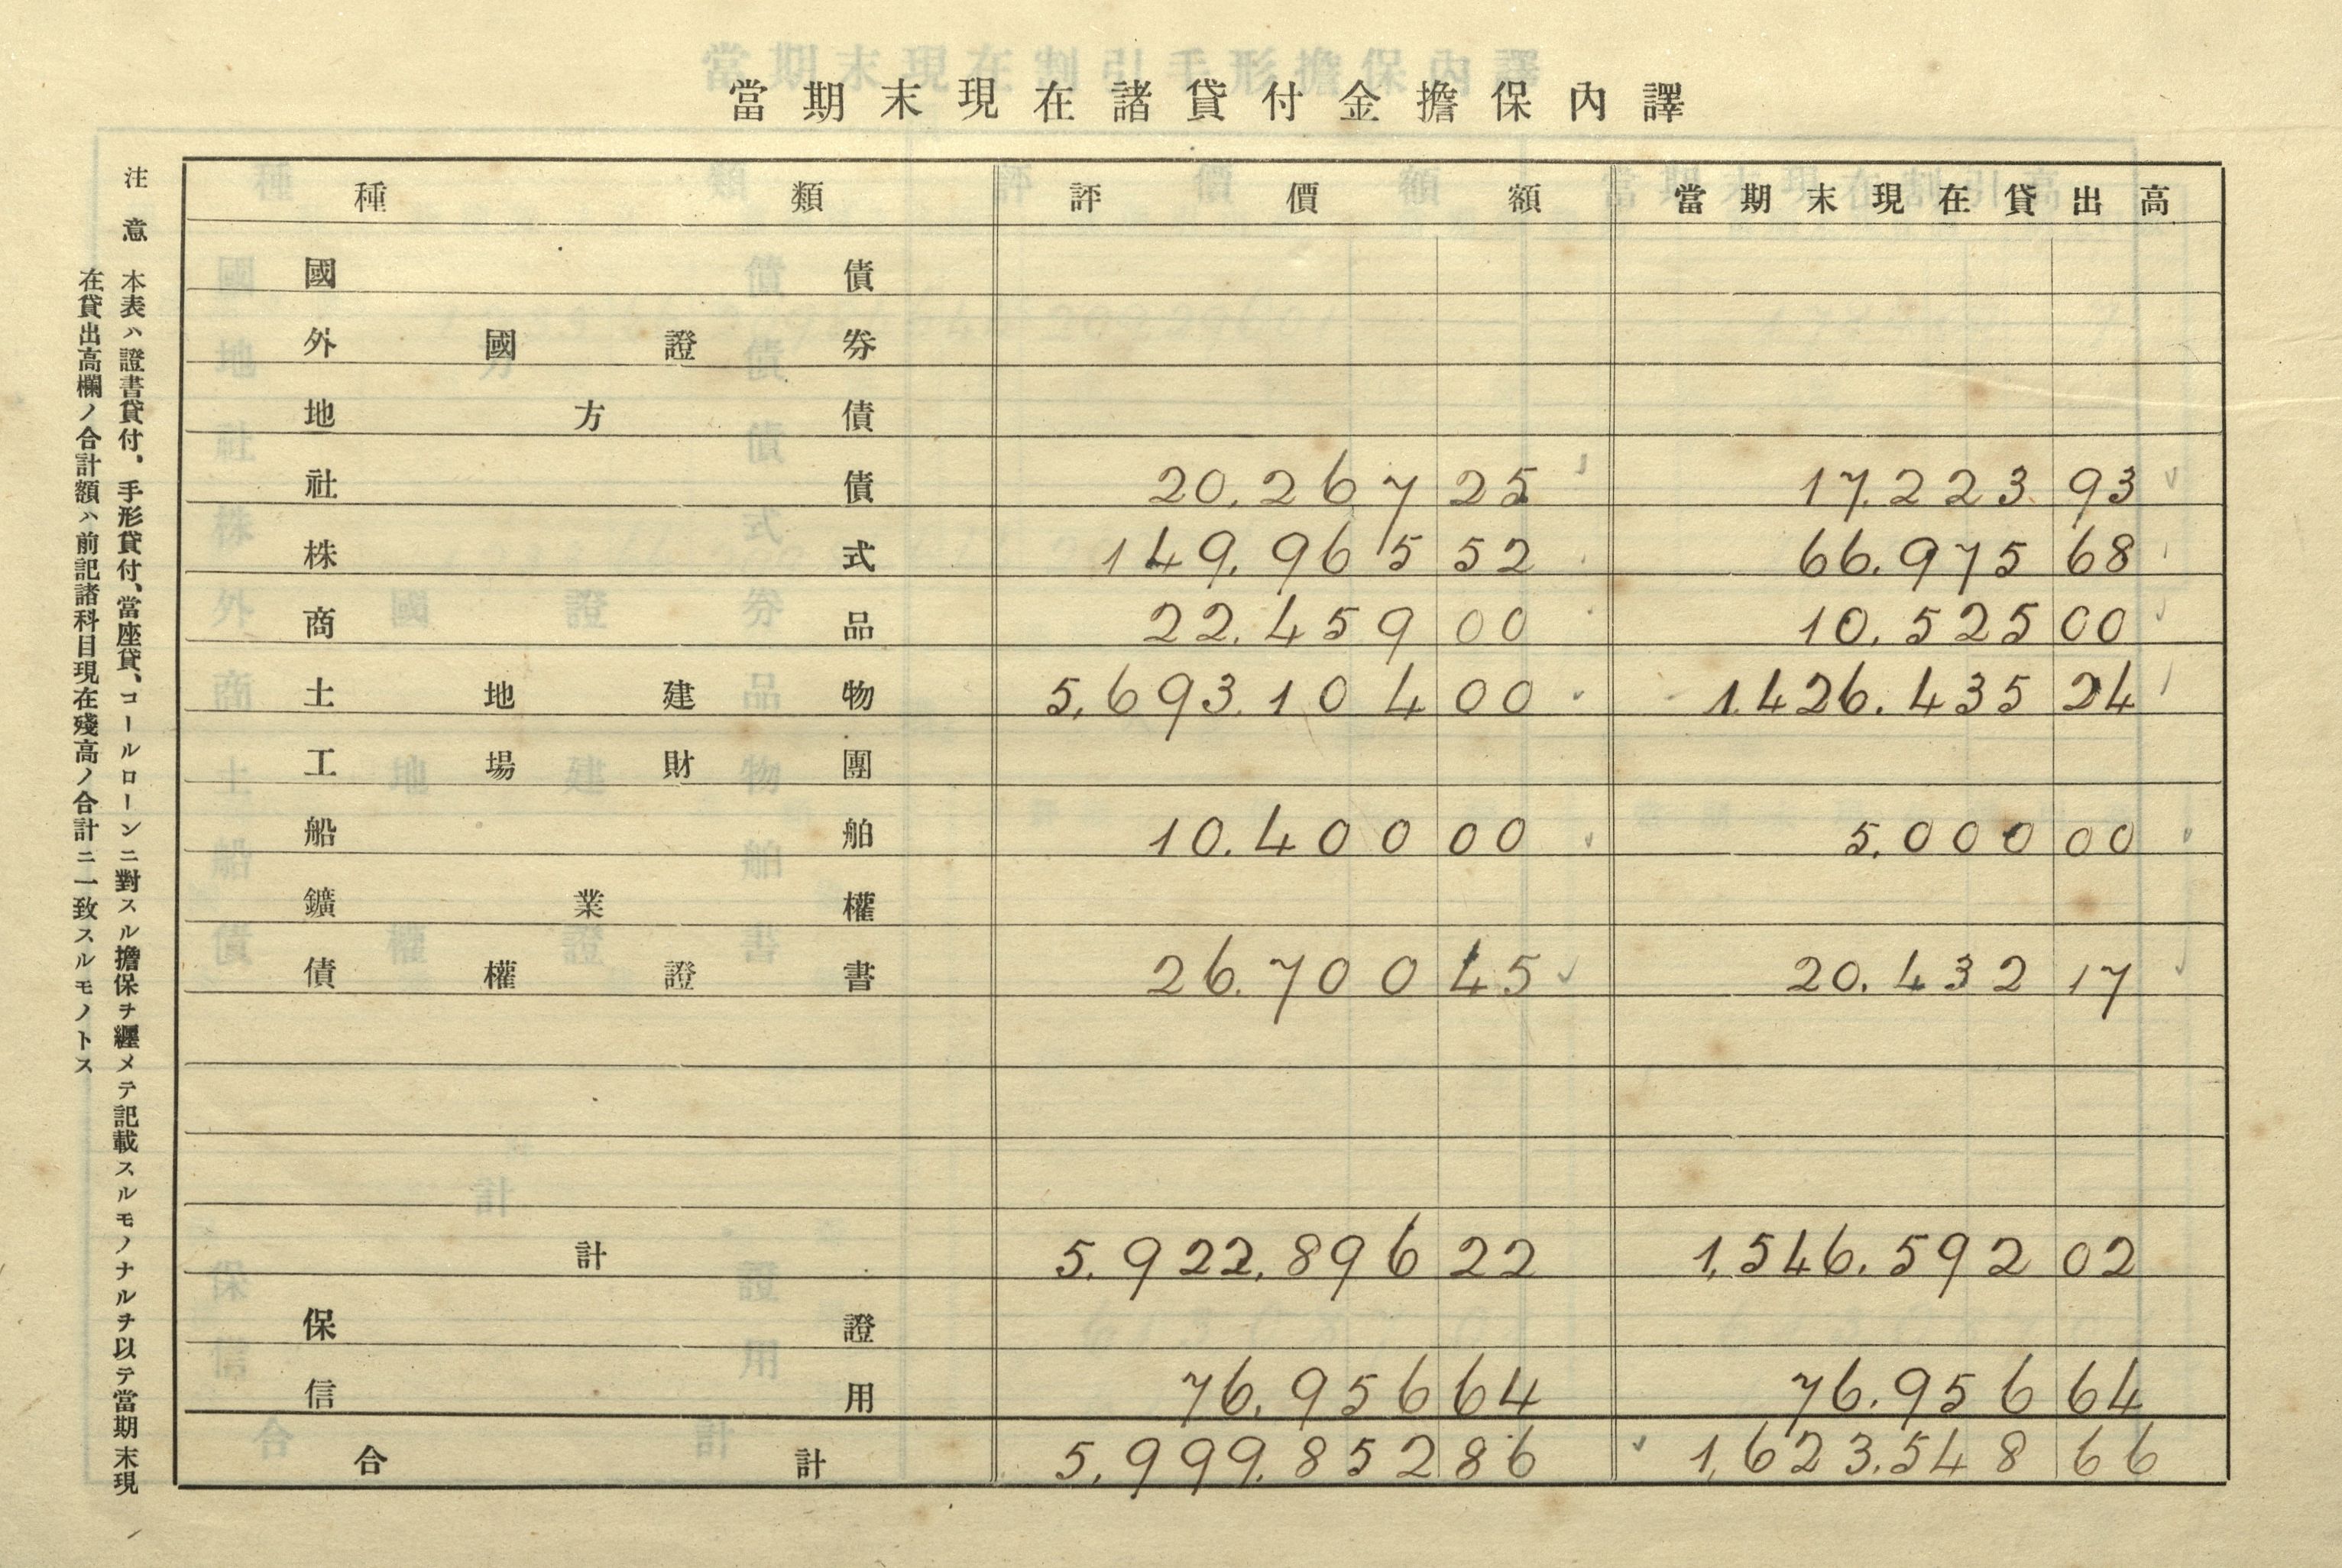 當期末現在諸貸付金擔保內譯
種類 評價額 當期末現在貸出高
國債
外國證券
地方債
社債 20,267 25 17,223 93
株式 149,965 52 66,975 68
商品 22,459 00 10,525 00
土地建物 5,693,104 00 1,426,435 24
工場財團
船舶 10,400 00 5,000 00
鑛業權
債權證書 26,700 45 20,432 17
計 5,922,896 22 1,546,592 02
保證
信用 76,956 64 76,956 64
合計 5,999,852 86 1,623,548 66
注意 本表ハ證書貸付、手形貸付、當座貸、コールローンニ對スル擔保ヲ纒メテ記載スルモノナルヲ以テ當期末現
在貸出高欄ノ合計額ハ前記諸科目現在殘高ノ合計ニ一致スルモノトス